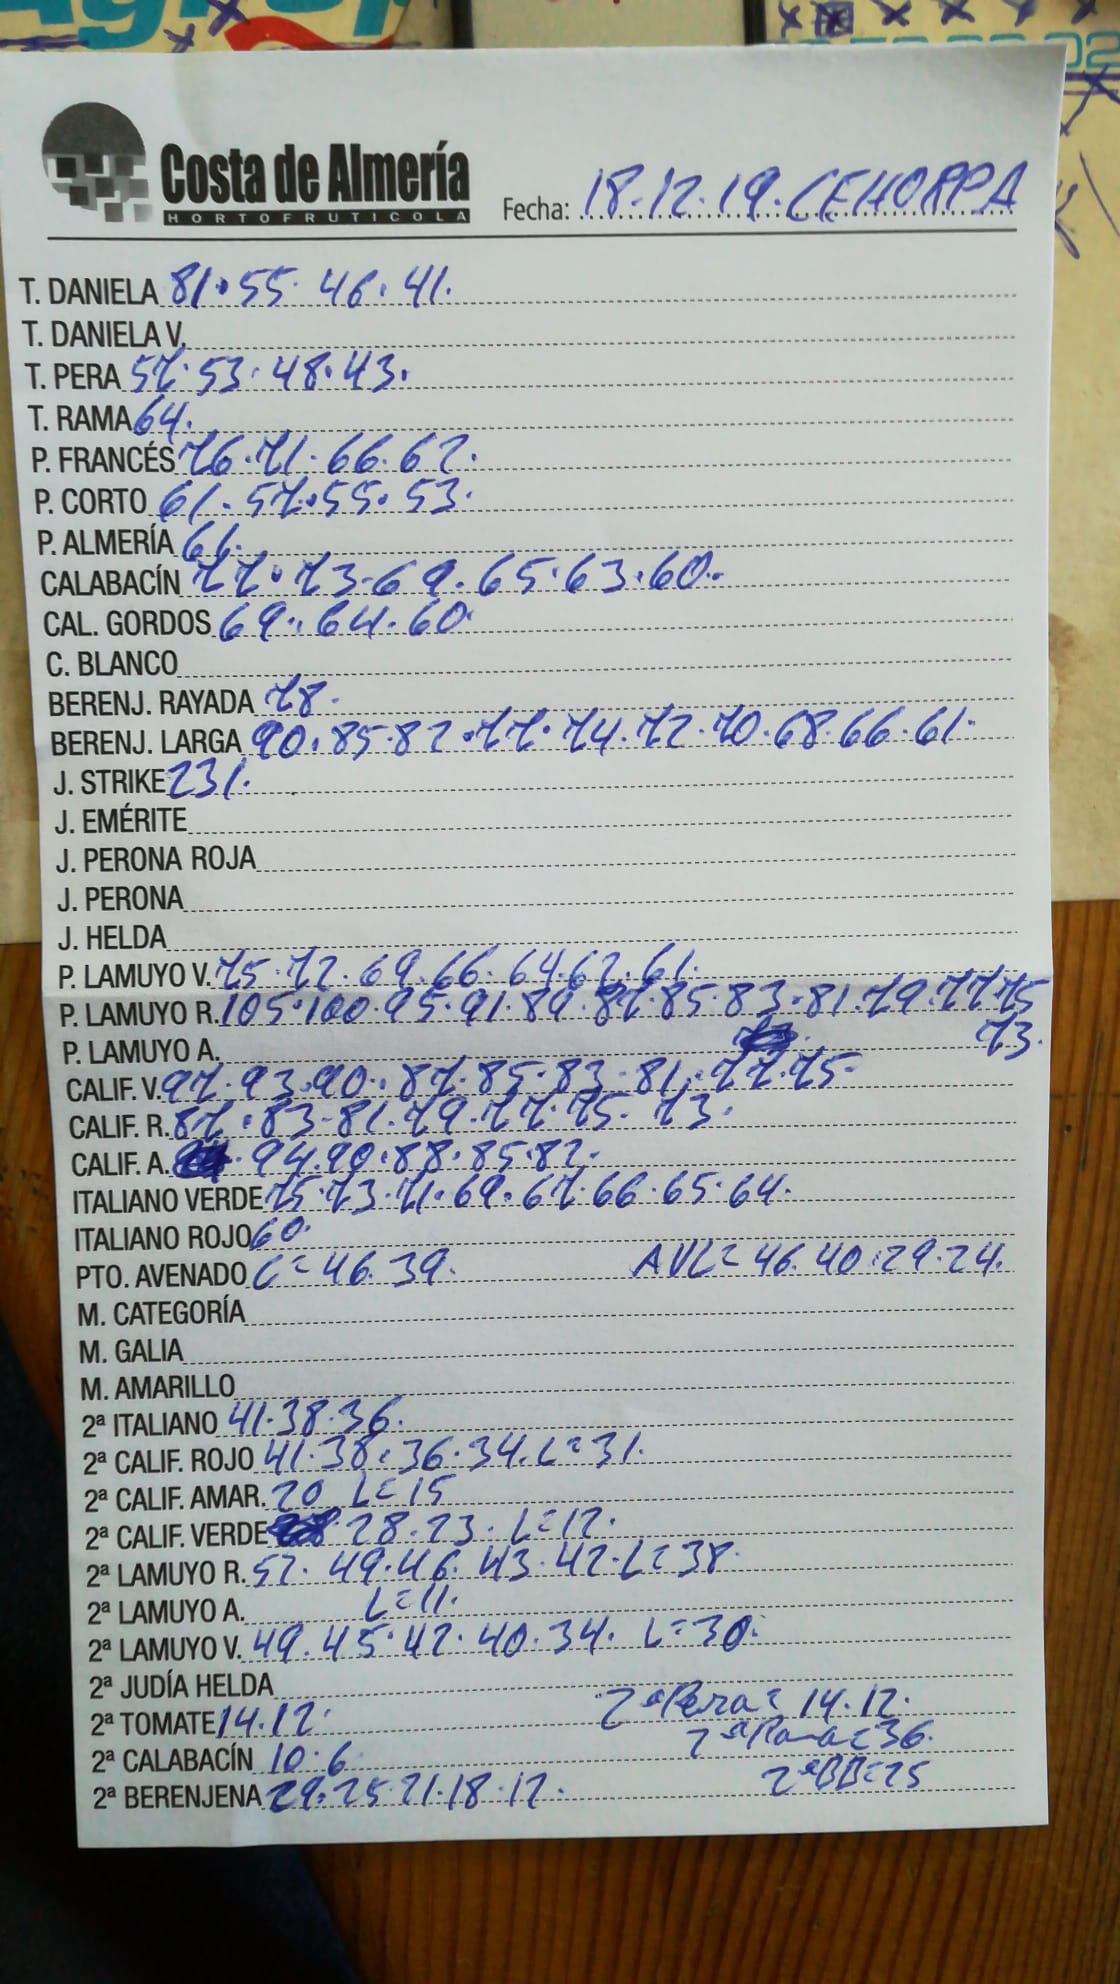 Costa de Almería
HORTOFRUTICOLA
Fecha: 18.12.19. CEHORPA
T. DANIELA 81.55.46.41.
T. DANIELA V.
T. PERA 57.53.48.43.
T. RAMA 64.
P. FRANCÉS 76.71.66.62.
P. CORTO 61.57.55.53.
P. ALMERÍA 66.
CALABACÍN 77.73.69.65.63.60.
CAL. GORDOS 69.64.60.
C. BLANCO
BERENJ. RAYADA 78.
BERENJ. LARGA 90.85.82.77.74.72.70.68.66.61.
J. STRIKE 231.
J. EMÉRITE
J. PERONA ROJA
J. PERONA
J. HELDA
P. LAMUYO V. 75.72.69.66.64.62.61.
P. LAMUYO R. 105.100.95.91.89.87.85.83.81.79.77.75
73.
P. LAMUYO A.
CALIF. V. 97.93.90.87.85.83.81.77.75.
CALIF. R. 87.83.81.79.77.75.73.
CALIF. A. 94.90.88.85.82.
ITALIANO VERDE 75.73.71.69.67.66.65.64.
ITALIANO ROJO 60.
PTO. AVENADO C=46.39. AVL=46.40.29.24.
M. CATEGORÍA
M. GALIA
M. AMARILLO
2ª ITALIANO 41.38.36.
2ª CALIF. ROJO 41.38.36.34. L=31.
2ª CALIF. AMAR. 20 L=15
2ª CALIF. VERDE 28.23. L=12.
2ª LAMUYO R. 52.49.46.43.42. L=38.
2ª LAMUYO A. L=11.
2ª LAMUYO V. 49.45.42.40.34. L=30.
2ª JUDÍA HELDA
2ª TOMATE 14.12. 2ª Pera= 14.12.
2ª Rama=36.
2ª CALABACÍN 10.6
2ª BB=25
2ª BERENJENA 29.25.21.18.12.